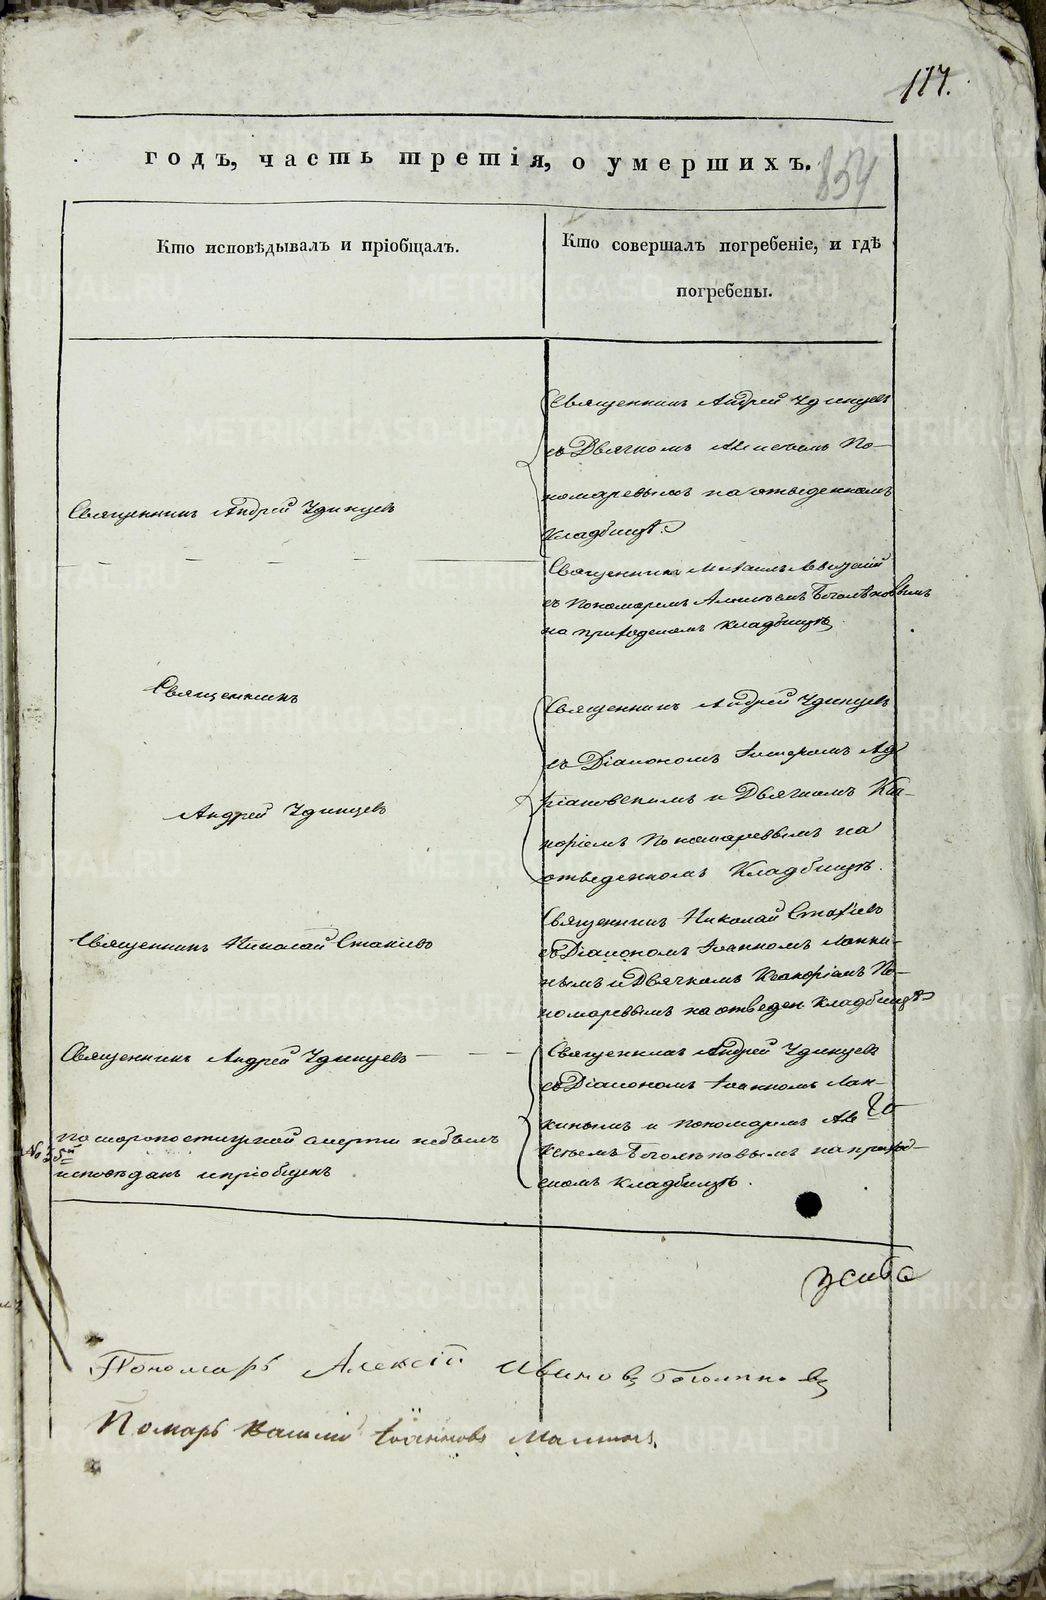 117.
годъ, часть третія, о умершихъ.
854
Кто исповѣдывалъ и пріобщалъ.
Кто совершалъ погребеніе, и гдѣ
погребены.
Священникъ Андрей Удинцевъ
съ Дьячкомъ По-
номаревымъ на отведенномъ
Кладбищѣ.
Священникъ Андрей Удинцевъ
Священникъ Михаилъ
съ Пономаремъ Алексѣемъ Боголѣповымъ
на приходскомъ кладбищѣ
Священникъ
Андрей Удинцевъ
Священникъ Андрей Удинцевъ
съ Діакономъ Ад
ріановскимъ и Дьячкомъ Ки-
норіемъ Пономаревымъ на
отведенномъ Кладбищѣ.
Священникъ Николай Стахіевъ
Священникъ Николай Стахіевъ
съ Діакономъ Іоанномъ Ланки-
нымъ и Дьячкомъ По-
номаревымъ на отведен кладбищѣ
Священникъ Андрей Удинцевъ
Священникъ Андрей Удинцевъ
съ Діакономъ Іоанномъ Лан-
кинымъ и пономаремъ Але
ксѣемъ Боголѣповымъ на приход-
скомъ кладбищѣ.
по скоропостижной смерти небылъ
исповѣданъ и пріобщенъ
Пономарь Алексій Ивановъ Боголѣповъ
Помарь Василій Іоанновъ
METRIKI.GASO-URAL.RU